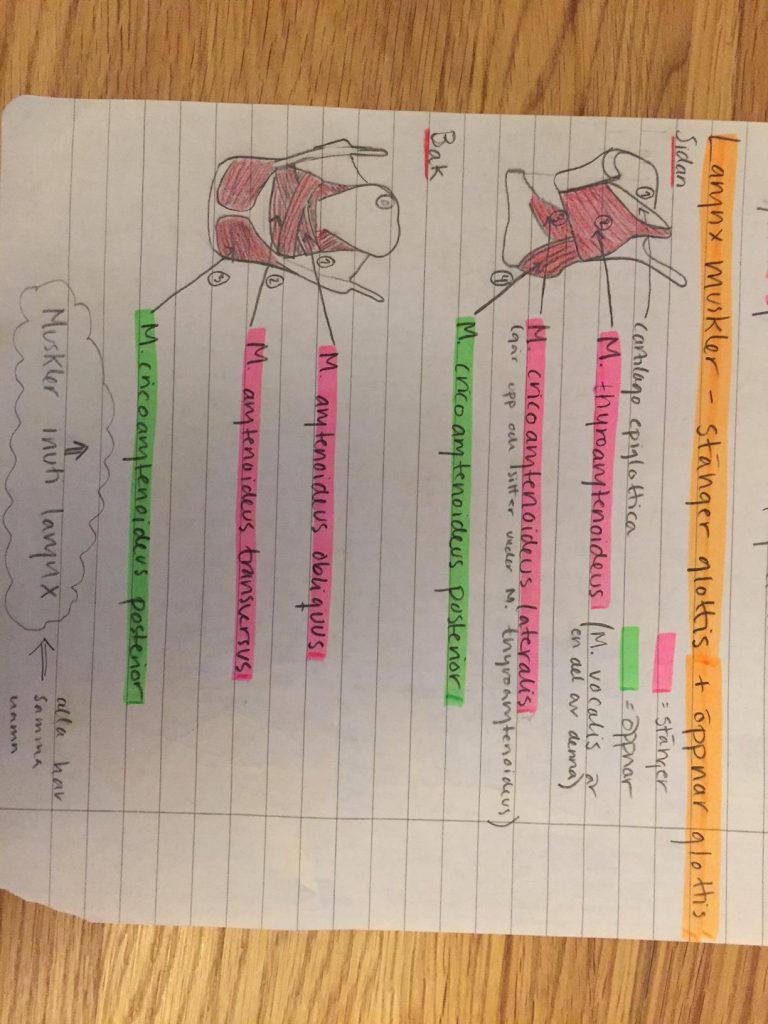 Larynx muskler - stänger glottis + öppnar glottis
Sidan
= stänger
= öppnar
cartilago epiglottica
M. thyroarytenoideus (M. vocalis är
en del av denna)
M. cricoarytenoideus lateralis
(går upp och sitter under M. thyroarytenoideus)
M. cricoarytenoideus posterior
1
2
3
4
Bak
0
1
2
3
M. arytenoideus obliquus
M. arytenoideus transversus
M. cricoarytenoideus posterior
Muskler inuti larynx
alla har
samma
namn